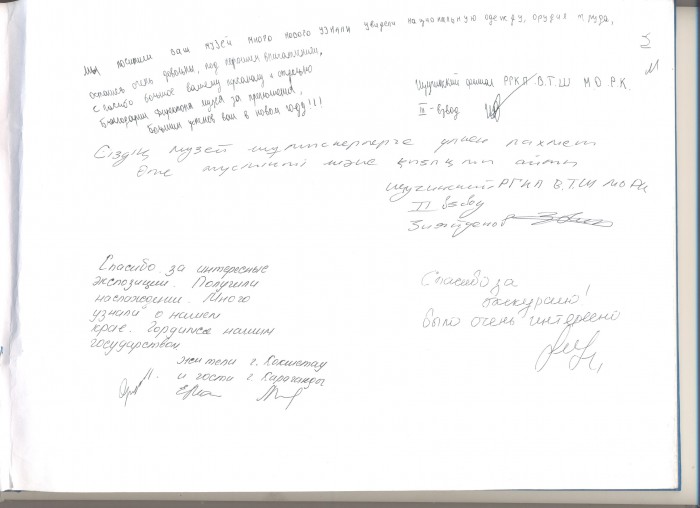 Мы посетили ваш музей много нового узнали увидели национальную одежду, орудия труда,
остались очень довольны, под хорошим впечатлением,
спасибо большое вашему
Благодарим директора музея за приглашение,
Больших успехов вам в новом году!!!
Щучинский филиал РГКП В.Т.Ш МО Р.К.
III - взвод
Сіздің музей үлкен рахмет
Өте мәне айтты
Щучинский РГКП В.Т.Ш МО РК
II взвод
Спасибо за интересные
экспозиции. Получили
наслаждении. Много
узнали о нашем
крае. Гордимся нашим
государством
жители г. Кокшетау
и гости г. Караганды
Спасибо за
экскурсию!
Было очень интересно